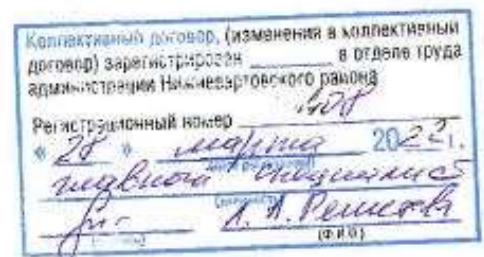 Коллективный договор, (изменения в коллективный
договор) зарегистрирован ________ в отделе труда
администрации Нижневартовского района
Регистрационный номер 408
« 28 » марта 2022 г.
главный специалист
(должность)
Л. А.
(Ф.И.О.)